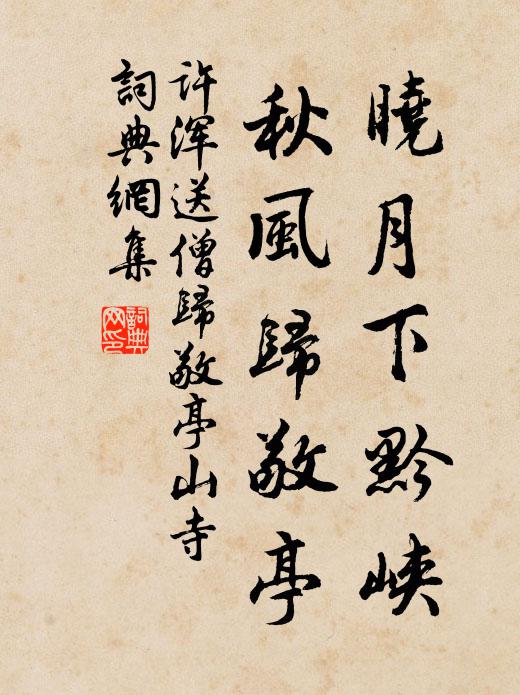 曉月下黔峽
秋風歸敬亭
許渾送僧歸敬亭山寺
詞典網集
詞典网印